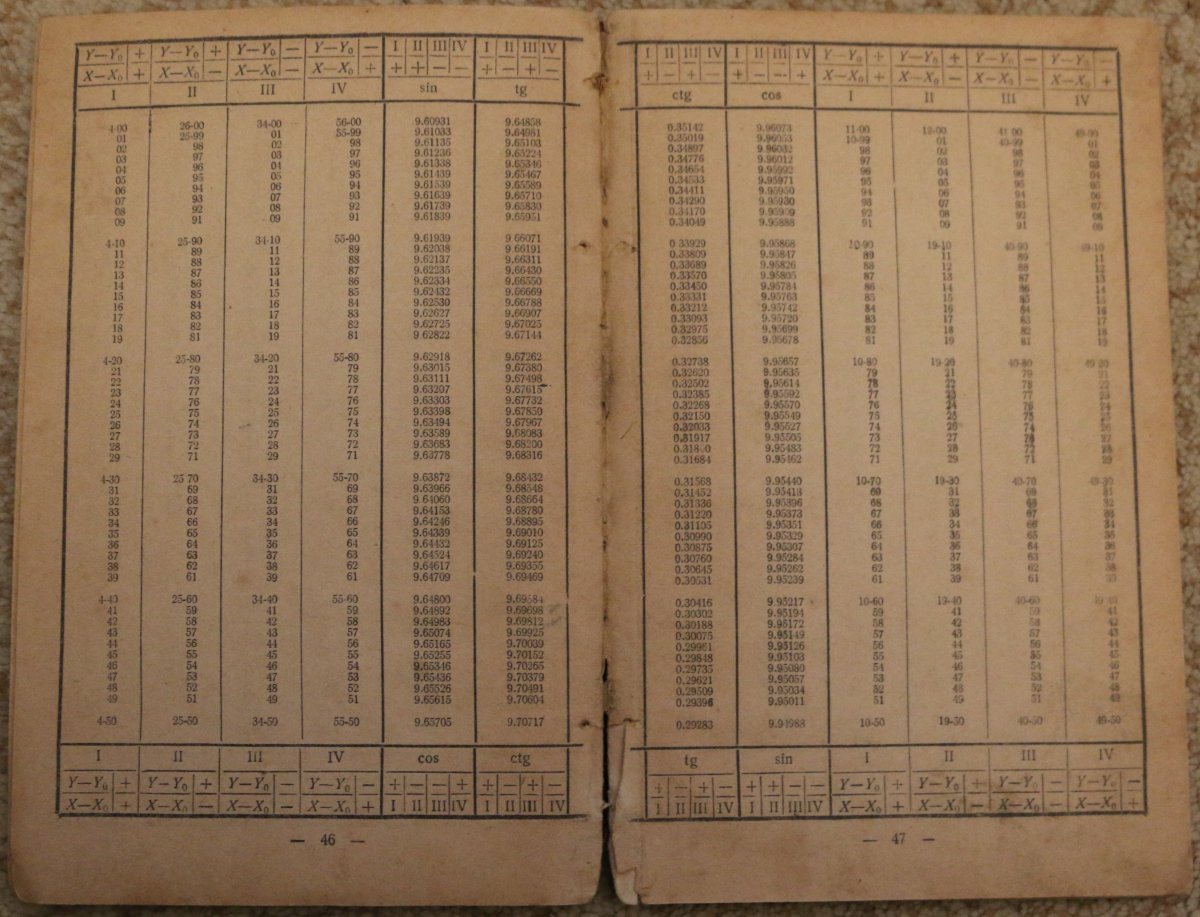 Y—Y₀ + Y—Y₀ + Y—Y₀ — Y—Y₀ — I II III IV I II III IV
X—X₀ + X—X₀ — X—X₀ — X—X₀ + + + — — + — + —
I II III IV sin tg
4-00 26-00 34-00 56-00 9.60931 9.64858
01 25-99 01 55-99 9.61033 9.64981
02 98 02 98 9.61135 9.65103
03 97 03 97 9.61236 9.65224
04 96 04 96 9.61338 9.65346
05 95 05 95 9.61439 9.65467
06 94 06 94 9.61539 9.65589
07 93 07 93 9.61639 9.65710
08 92 08 92 9.61739 9.65830
09 91 09 91 9.61839 9.65951
4-10 25-90 34-10 55-90 9.61939 9 66071
11 89 11 89 9.62038 9.66191
12 88 12 88 9.62137 9.66311
13 87 13 87 9.62235 9.66430
14 86 14 86 9.62334 9.66550
15 85 15 85 9.62432 9.66669
16 84 16 84 9.62530 9.66788
17 83 17 83 9.62627 9.66907
18 82 18 82 9.62725 9.67025
19 81 19 81 9.62822 9.67144
4-20 25-80 34-20 55-80 9.62918 9.67262
21 79 21 79 9.63015 9.67380
22 78 22 78 9.63111 9.67498
23 77 23 77 9.63207 9.67615
24 76 24 76 9.63303 9.67732
25 75 25 75 9.63398 9.67850
26 74 26 74 9.63494 9.67967
27 73 27 73 9.63589 9.68083
28 72 28 72 9.63683 9.68200
29 71 29 71 9.63778 9.68316
4-30 25 70 34-30 55-70 9.63872 9.68432
31 69 31 69 9.63966 9.68548
32 68 32 68 9.64060 9.68664
33 67 33 67 9.64153 9.68780
34 66 34 66 9.64246 9.68895
35 65 35 65 9.64339 9.69010
36 64 36 64 9.64432 9.69125
37 63 37 63 9.64524 9.69240
38 62 38 62 9.64617 9.69355
39 61 39 61 9.64709 9.69469
4-40 25-60 34-40 55-60 9.64800 9.69584
41 59 41 59 9.64892 9.69698
42 58 42 58 9.64983 9.69812
43 57 43 57 9.65074 9.69925
44 56 44 56 9.65165 9.70039
45 55 45 55 9.65255 9.70152
46 54 46 54 9.65346 9.70265
47 53 47 53 9.65436 9.70379
48 52 48 52 9.65526 9.70491
49 51 49 51 9.65615 9.70604
4-50 25-50 34-50 55-50 9.65705 9.70717
I II III IV cos ctg
Y—Y₀ + Y—Y₀ + Y—Y₀ — Y—Y₀ — + — — + + — + —
X—X₀ + X—X₀ — X—X₀ — X—X₀ + I II III IV I II III IV
— 46 —
I II III IV I II III IV Y—Y₀ + Y—Y₀ + Y—Y₀ — Y—Y₀ —
+ — + — + — — + X—X₀ + X—X₀ — X—X₀ — X—X₀ +
ctg cos I II III IV
0.35142 9.96073 11-00 19-00 41-00 49-00
0.35019 9.96053 10-99 01 40-99 01
0.34897 9.96032 98 02 98 02
0.34776 9.96012 97 03 97 03
0.34654 9.95992 96 04 96 04
0.34533 9.95971 95 05 95 05
0.34411 9.95950 94 06 94 06
0.34290 9.95930 93 07 93 07
0.34170 9.95909 92 08 92 08
0.34049 9.95888 91 09 91 09
0 33929 9.95868 10-90 19-10 40-90 49-10
0.33809 9.95847 89 11 89 11
0.33689 9.95826 88 12 88 12
0.33570 9.95805 87 13 87 13
0.33450 9.95784 86 14 86 14
0.33331 9.95763 85 15 85 15
0.33212 9.95742 84 16 84 16
0.33093 9.95720 83 17 83 17
0.32975 9.95699 82 18 82 18
0.32856 9.95678 81 19 81 19
0.32738 9.95657 10-80 19-20 40-80 49-20
0.32620 9.95635 79 21 79 21
0.32502 9.95614 78 22 78 22
0.32385 9.95592 77 23 77 23
0.32268 9.95570 76 24 76 24
0.32150 9.95549 75 25 75 25
0.32033 9.95527 74 26 74 26
0.31917 9.95505 73 27 73 27
0.31800 9.95483 72 28 72 28
0.31684 9.95462 71 29 71 29
0.31568 9.95440 10-70 19-30 40-70 49-30
0.31452 9.95418 69 31 69 31
0.31336 9.95396 68 32 68 32
0.31220 9.95373 67 33 67 33
0.31105 9.95351 66 34 66 34
0.30990 9.95329 65 35 65 35
0.30875 9.95307 64 36 64 36
0.30760 9.95284 63 37 63 37
0.30645 9.95262 62 38 62 38
0.30531 9.95239 61 39 61 39
0.30416 9 95217 10-60 19-40 40-60 49-40
0.30302 9.95194 59 41 59 41
0.30188 9.95172 58 42 58 42
0.30075 9.95149 57 43 57 43
0.29961 9.95126 56 44 56 44
0.29848 9.95103 55 45 55 45
0.29735 9.95080 54 46 54 46
0.29621 9.95057 53 47 53 47
0.29509 9.95034 52 48 52 48
0.29396 9.95011 51 49 51 49
0.29283 9.94988 10-50 19-50 40-50 49-50
tg sin I II III IV
+ — + — + + — — Y—Y₀ + Y—Y₀ + Y—Y₀ — Y—Y₀ —
I II III IV I II III IV X—X₀ + X—X₀ — X—X₀ — X—X₀ +
— 47 —